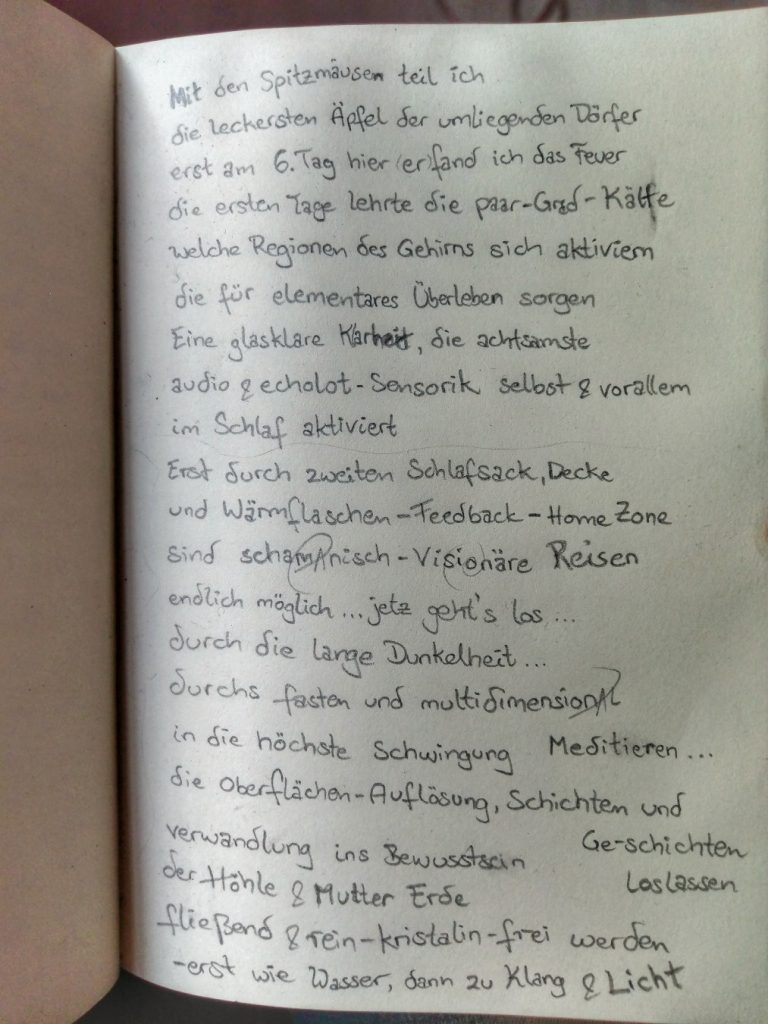 Mit den Spitzmäusen teil ich
die leckersten Äpfel der umliegenden Dörfer
erst am 6.Tag hier (er)fand ich das Feuer
die ersten Tage lehrte die paar-Grad-Kälte
welche Regionen des Gehirns sich aktiviern
die für elementares Überleben sorgen
Eine glasklare Klarheit, die achtsamste
audio & echolot-Sensorik selbst & vorallem
im Schlaf aktiviert
Erst durch zweiten Schlafsack, Decke
und Wärmflaschen-Feedback-Home Zone
sind schamAnisch-Visionäre Reisen
endlich möglich... jetz geht's los...
durch die lange Dunkelheit...
durchs fasten und multidimensionAl
in die höchste Schwingung Meditieren...
die Oberflächen-Auflösung, Schichten und
Ge-schichten
loslassen
verwandlung ins Bewusstsein
der Höhle & Mutter Erde
fließend & rein-kristalin-frei werden
-erst wie Wasser, dann zu Klang & Licht